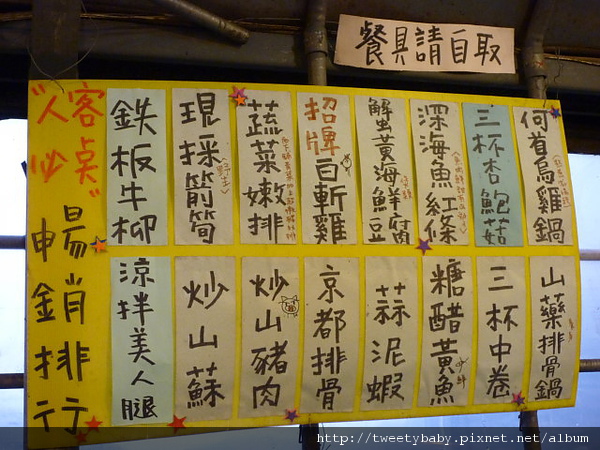 餐具請自取
何首烏雞鍋
三杯杏鮑菇
深海魚紅條
蟹黃海鮮豆腐
招牌白斬雞
蔬菜嫩排
現採箭筍
鉄板牛柳
"人客
炒桌"
暢銷排行
山藥排骨鍋
三杯中卷
糖醋黃魚
蒜泥蝦
京都排骨
炒山豬肉
炒山蘇
涼拌美人腿
http://tweetybaby.pixnet.net/album